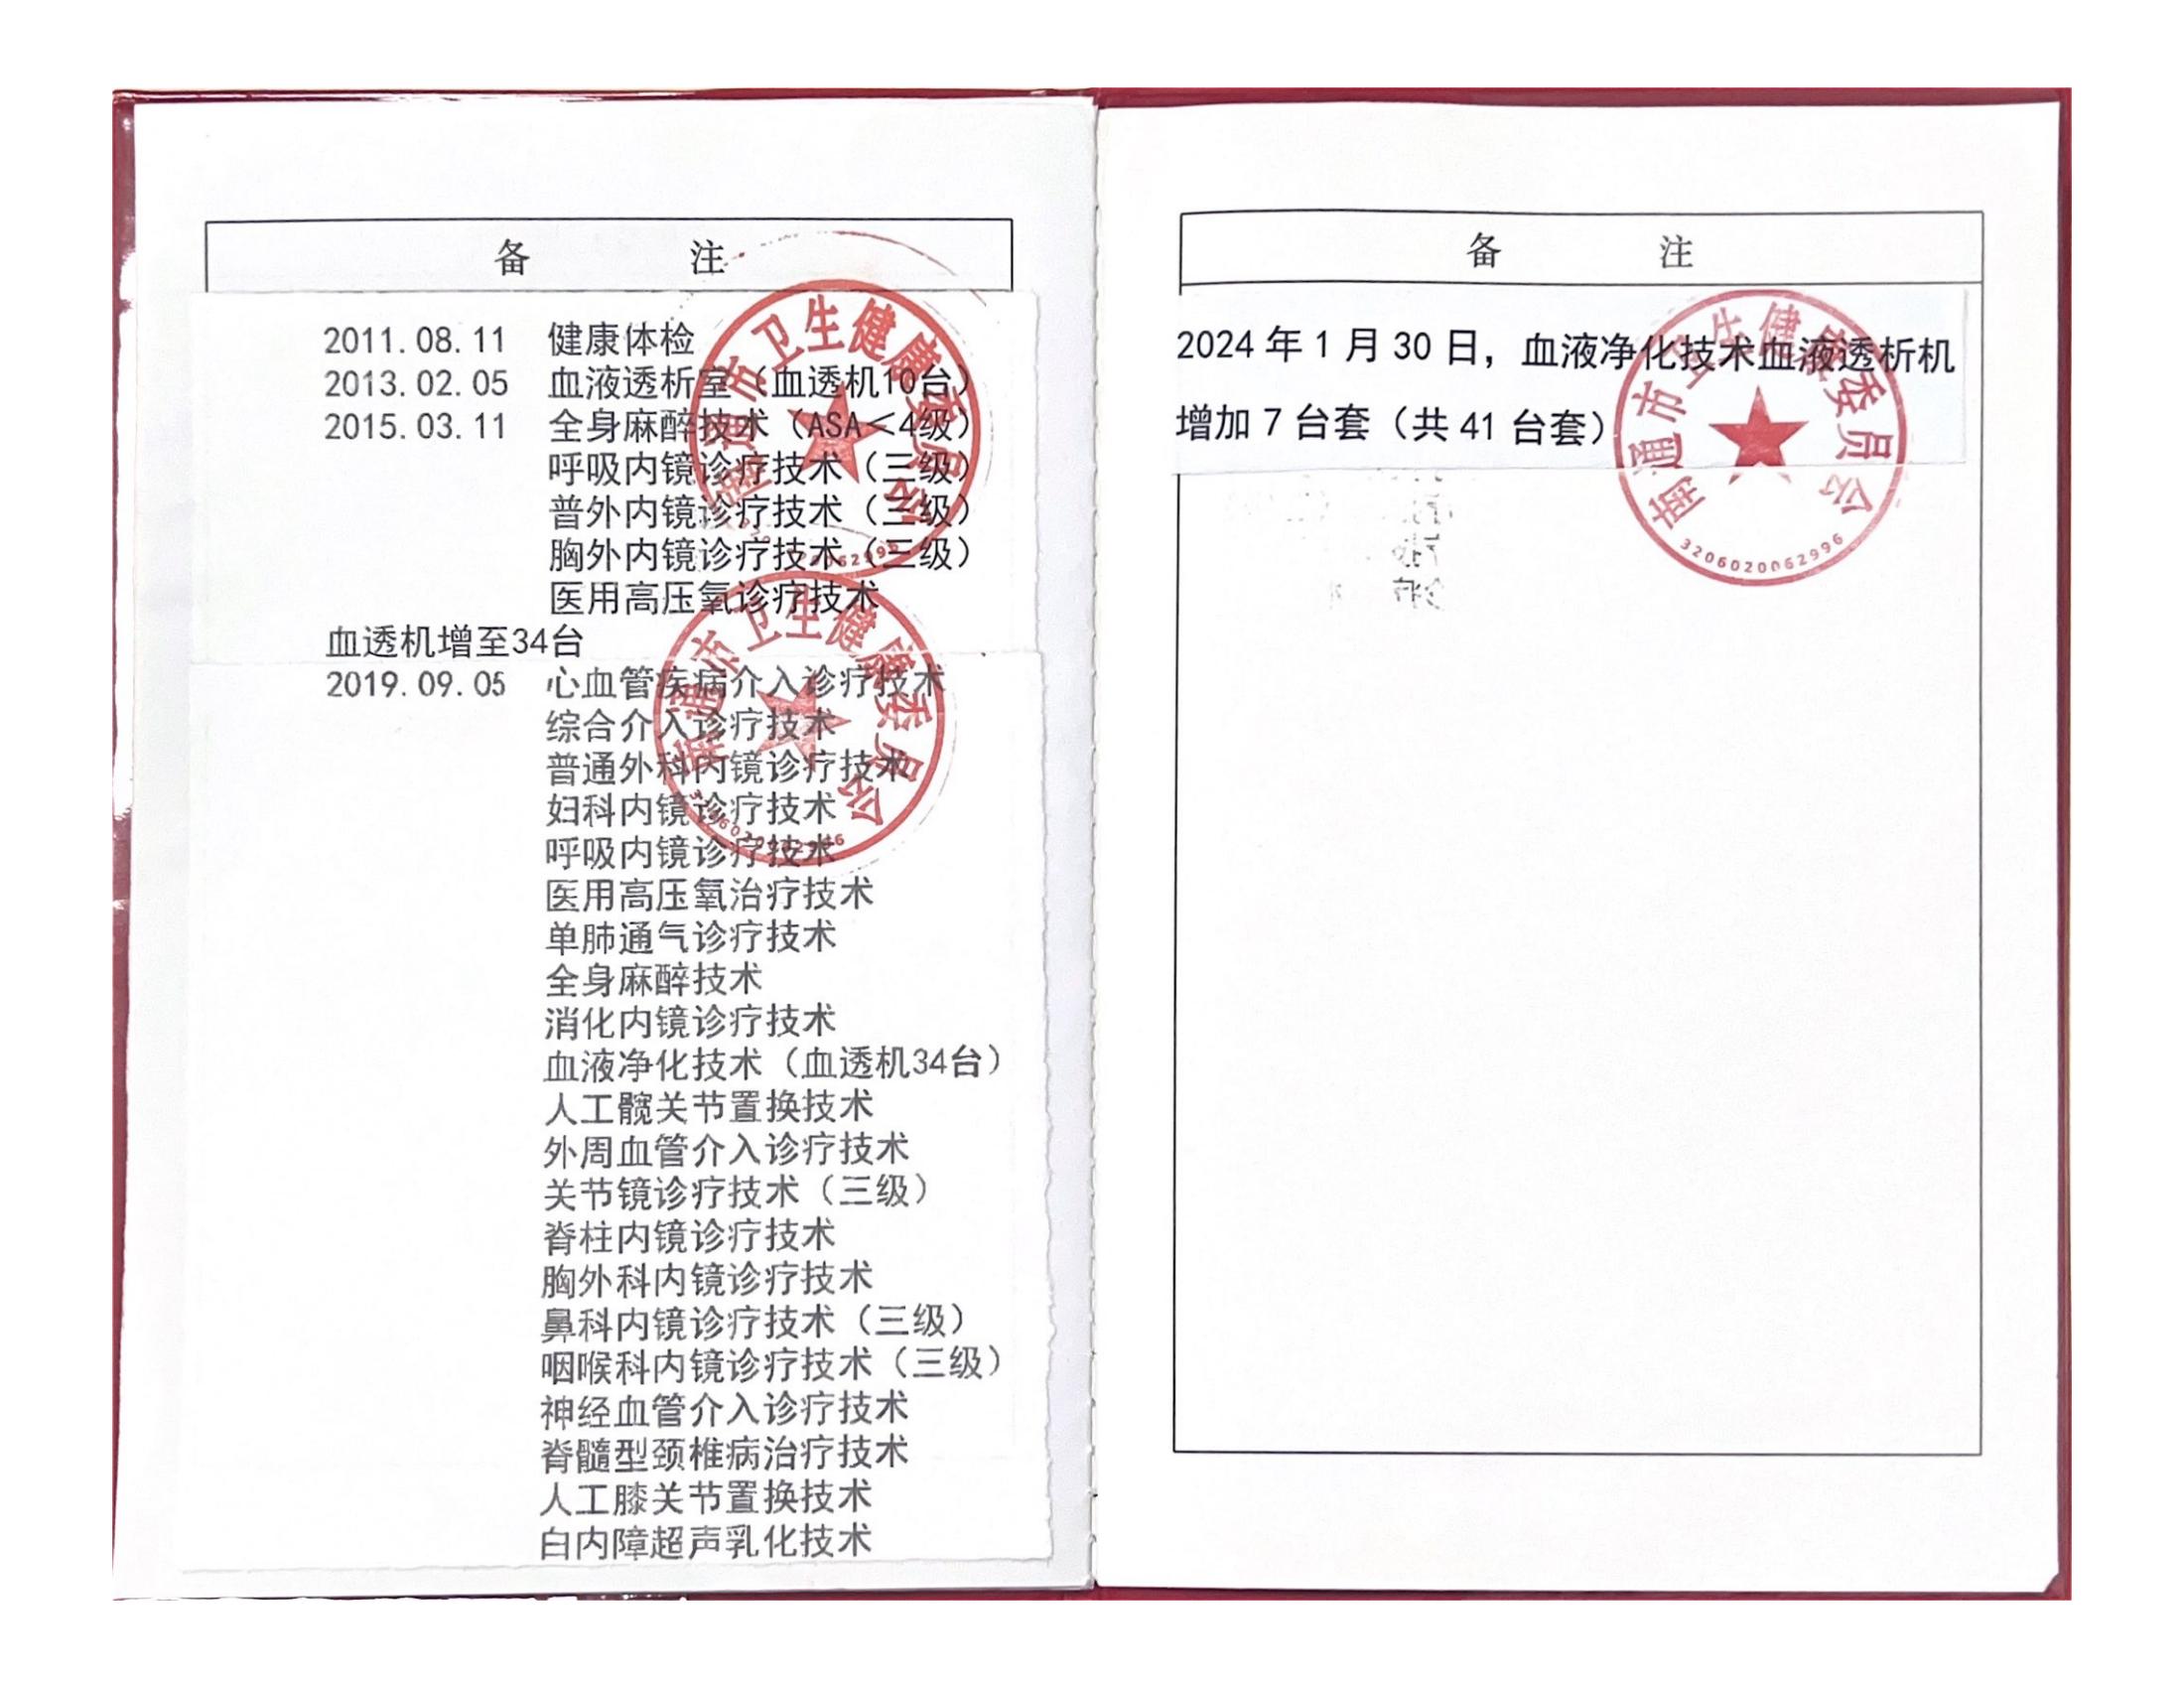 备 注
2011.08.11 健康体检
2013.02.05 血液透析室（血透机10台）
2015.03.11 全身麻醉技术（ASA＜4级）
呼吸内镜诊疗技术（三级）
普外内镜诊疗技术（三级）
胸外内镜诊疗技术（三级）
医用高压氧诊疗技术
血透机增至34台
2019.09.05 心血管疾病介入诊疗技术
综合介入诊疗技术
普通外科内镜诊疗技术
妇科内镜诊疗技术
呼吸内镜诊疗技术
医用高压氧治疗技术
单肺通气诊疗技术
全身麻醉技术
消化内镜诊疗技术
血液净化技术（血透机34台）
人工髋关节置换技术
外周血管介入诊疗技术
关节镜诊疗技术（三级）
脊柱内镜诊疗技术
胸外科内镜诊疗技术
鼻科内镜诊疗技术（三级）
咽喉科内镜诊疗技术（三级）
神经血管介入诊疗技术
脊髓型颈椎病治疗技术
人工膝关节置换技术
白内障超声乳化技术
南通市卫生健康委员会
南通市卫生健康委员会
备 注
2024年1月30日，血液净化技术血液透析机
增加7台套（共41台套）
南通市卫生健康委员会
3206020062996